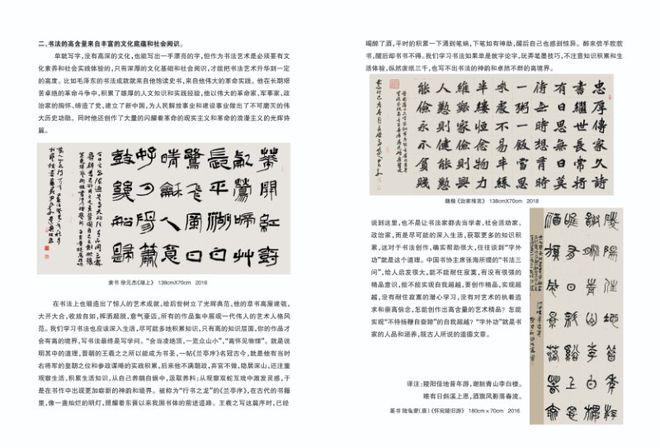 二、书法的高含量来自丰富的文化底蕴和社会阅识。
单就写字,没有高深的文化,也能写出一手漂亮的字,但作为书法艺术是必须要有文
化素养和社会实践体验的,只有深厚的文化基础和社会阅历,才能把书法艺术升华到一定
的高度。比如毛泽东的书法成就就来自他饱读史书,来自他伟大的革命实践。他在长期艰
苦卓绝的革命斗争中,积累了雄厚的人文知识和实践经验,他以伟大的革命家,军事家,政
治家的胸怀,缔造了党,建立了新中国,为人民解放事业和建设事业做出了不可磨灭的伟
大历史功勋。同时他还创作了大量的闪耀着革命的现实主义和革命的浪漫主义的光辉诗
篇。
花開紅樹
亂鶯啼草
長平湖白
鷺飛風日
晴龢人意
好夕陽簫
鼓幾船歸
隶书 徐元杰《湖上》 138cmX70cm 2018
在书法上也锻造出了惊人的艺术成就,给后世树立了光辉典范。他的章书高屋建瓴,
大开大合,收放自如,挥洒超脱,意气豪迈,所有的作品集中展现一代伟人的艺术人格风
范。我们学习书法也应该深入生活,尽可能多地积累知识,只有高的知识层面,你的作品才
会有高的境界,写书法最终是写学问。“会当凌绝顶,一览众山小”,“高怀见物理”。就是说
明其中的道理,晋朝的王羲之之所以能成为书圣,一帖《兰亭序》名冠古今,就是他有当时
右将军的皇朝之位和参政谋略的实践积累,后来他不满朝政,弃官不做,隐居深山,还注重
观察生活,积累生活知识,从自己养鹅自娱中,汲取养料;从观察双蛇互戏中激发灵感,于
是在书作中出现更加崭新的神韵和境界。被称为“行书之龙”的《兰亭序》,在古代的书籍
里,像一盏灿烂的明灯,照耀着东晋以来我国书体的前进道路。王羲之写这篇序时,已经
喝醉了酒,平时的积累一下涌到笔端,下笔如有神助,醒后自己也感到惊异。醉来信手欲乾
书,醒后却书书不得。我们学习书法如果单是教字论字,玩弄笔墨技巧,不注意知识积累和生
活体验,纵然废纸三千,也写不出书法的神韵和卓然不群的高境界。
忠厚傳家久詩
書繼世長常將
有日思無日莫
魏楷《治家格言》 138cmX70cm 2018
说到这里,也不是让书法家都去当学者,社会活动家,
政治家,而是尽可能的深入生活,获取更多的知识积
累,这对于书法创作,确实帮助很大,往往谈到“字外
功”就是这个道理。中国书协主席张海所提的“书法三
问”,给人启发很大,能不能耐住寂寞,有没有很强的
精品意识,能不能实现自我超越。要创作精品,实现超
越,没有耐住寂寞的潜心学习,没有对艺术的执着追
求和崇高信念,怎能创作出高含量的艺术精品?怎能
实现“不待扬鞭自奋蹄”的自我超越?“字外功”就是书
家的人品和涵养,既古人所说的道德文章。
译注:陵阳佳地昔年游,谢朓青山李白楼。
唯有日斜溪上思,酒旗风影落春流。
篆书 陆龟蒙(唐)《怀宛陵旧游》 180cm x 70cm 2016